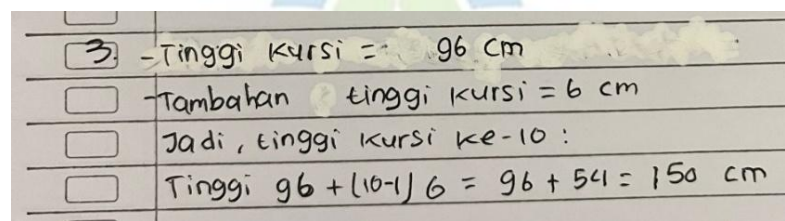 3. - Tinggi kursi = 96 cm
- Tambahan tinggi kursi = 6 cm
Jadi, tinggi kursi ke-10 :
Tinggi 96 + (10-1) 6 = 96 + 54 = 150 cm